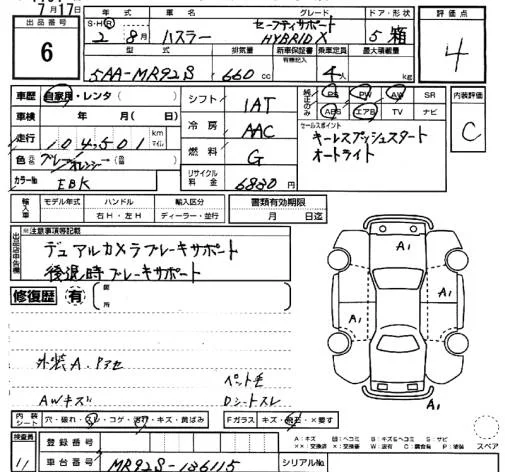 7月17日
出品番号 6
年式 車名 グレード ドア・形状
S・H・R 2年8月 ハスラー セーフティサポート HYBRID X 5 箱
型式 排気量 新車保証書 有償記入 乗車定員 最大積載量
5AA-MR92S 660cc 4人 kg
評価点 4
車歴 自家用・レンタ( )
車検 年 月( 日)
走行 104,501 km マイル
色 元色 グレー/オレンジ (色 )
カラーNo EBK
シフト 1AT
冷房 AAC
燃料 G
リサイクル料金 6830円
純正のみ PS PW AW SR
ABS エアB TV ナビ
セールスポイント
キーレスプッシュスタート
オートライト
内装評価 C
輸入車 モデル年式 ハンドル 輸入区分
年 右H・左H ディーラー・並行
書類有効期限
月 日迄
出品店申告欄 ※注意事項等記載
デュアルカメラブレーキサポート
後退時ブレーキサポート
修復歴 有 箇所
A1
A1
A1
外装A、
ペット毛
AWキズ Dシートスレ
内装シート 穴・破れ・スレ・コゲ・汚れ・キズ・黄ばみ Fガラス キズ・飛石・×要す
検査員 11
登録番号
車台番号 MR92S-136115 シリアルNo.
A:キズ U:ヘコミ B:キズ&ヘコミ S:サビ
××:交換済 ×:交換要 W:波有 C:腐食有 P:塗装
スペア